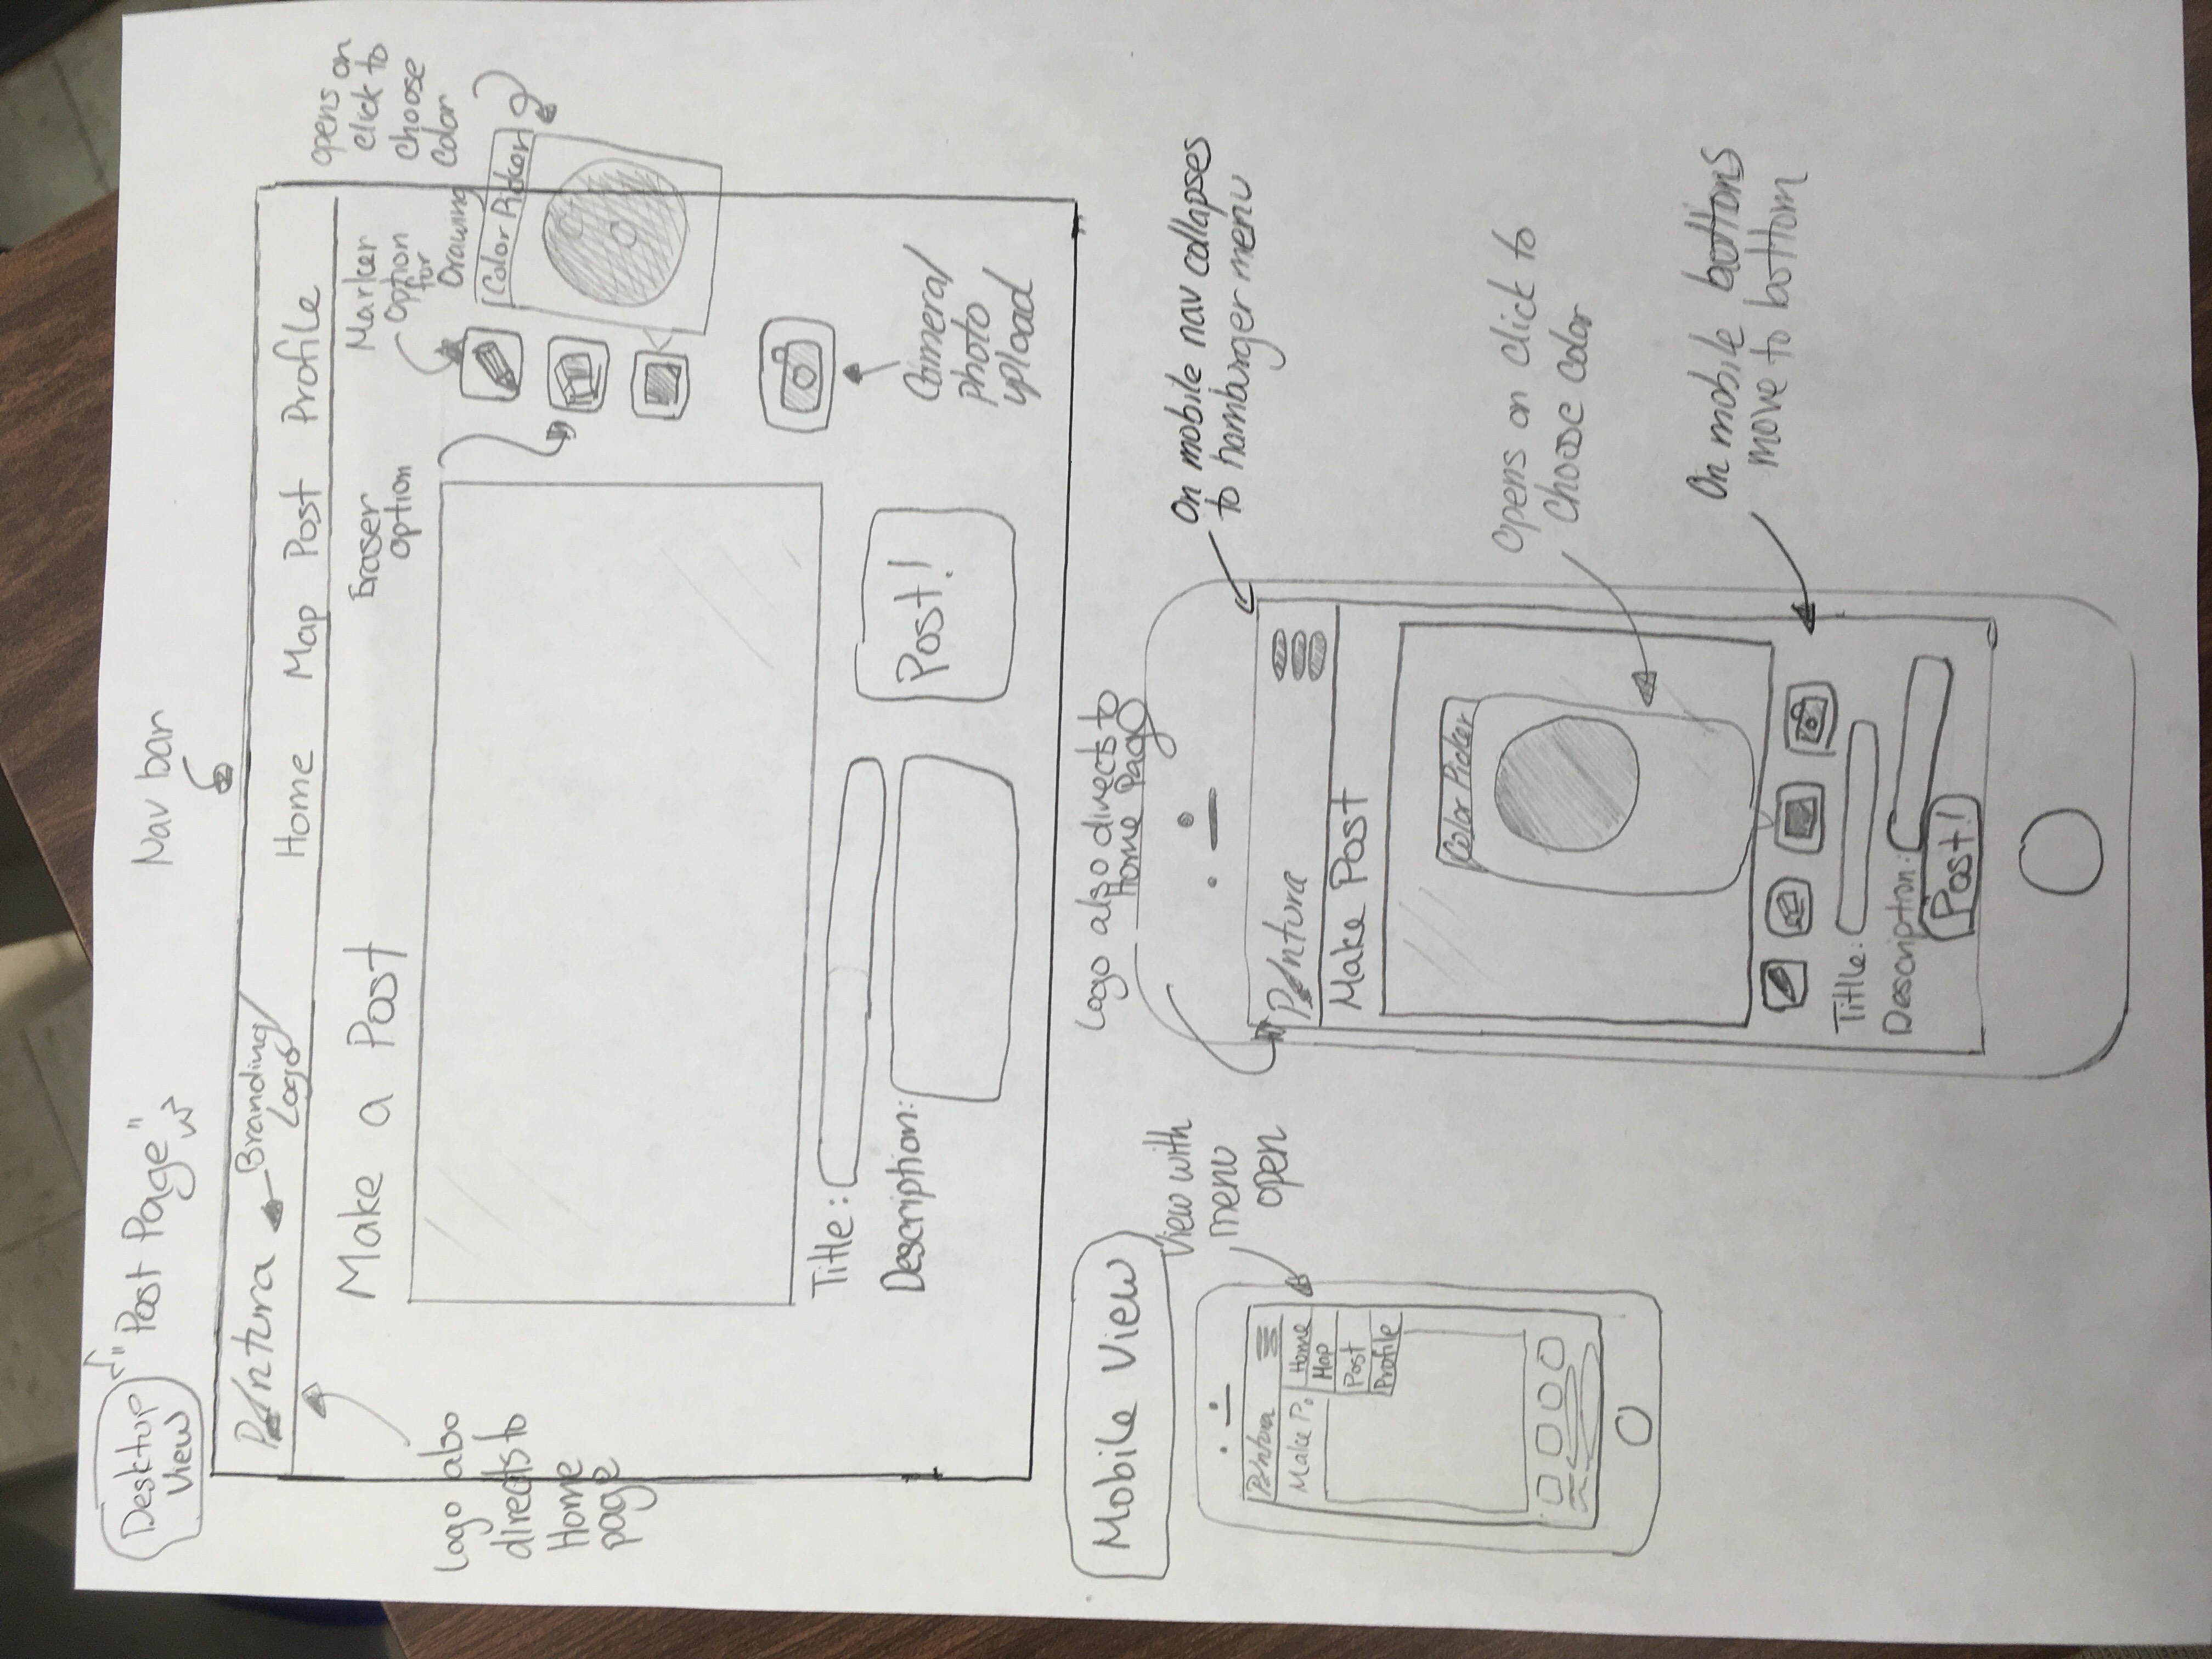 Desktop
View
"Post Page"
Nav bar
Pintura
Branding/
Logo
Home Map Post Profile
Make a Post
Eraser
option
Marker
option
for
Drawing
opens on
click to
choose
color
Logo also
directs to
Home
page
Color Picker
Title:
Description:
Post!
Camera/
photo
upload
Mobile View
View with
menu
open
Pintura
Make P.
Home
Map
Post
Profile
Logo also directs to
Home Page
On mobile nav collapses
to hamburger menu
Pintura
Make Post
Color Picker
Opens on click to
choose color
On mobile buttons
move to bottom
Titlle:
Description:
Post!